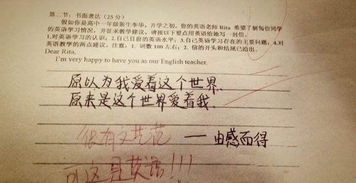 第二节：书面表达（25分）
假如你是高中一年级新生李华，开学之初，你的英语老师 Rita 希望了解每位同学
的英语学习情况，并征求教学建议，请按以下要点用英语给她写一封信。
1.对英语学习的认识；2.自己目前的英语水平；3.自己英语学习存在的主要问题；4.对
英语教学的两点建议。注意：1. 词数100左右；2. 信的开头和结尾已给出。
Dear Rita,
I'm very happy to have you as our English teacher.
原以为我爱着这个世界.
原来是这个世界爱着我.
很有文艺范 ——由感而得
可这是英语!!!